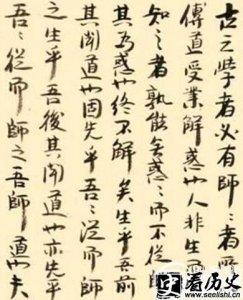 古之學者必有師〻者所
傳道受業解惑也人非生而
知之者孰能無惑〻而不從師
其為惑也終不解矣生乎吾前
其聞道也固先乎吾〻從而師
之生乎吾後其聞道也亦先乎
吾〻從而師之吾師道也夫
看历史
www.seelishi.com